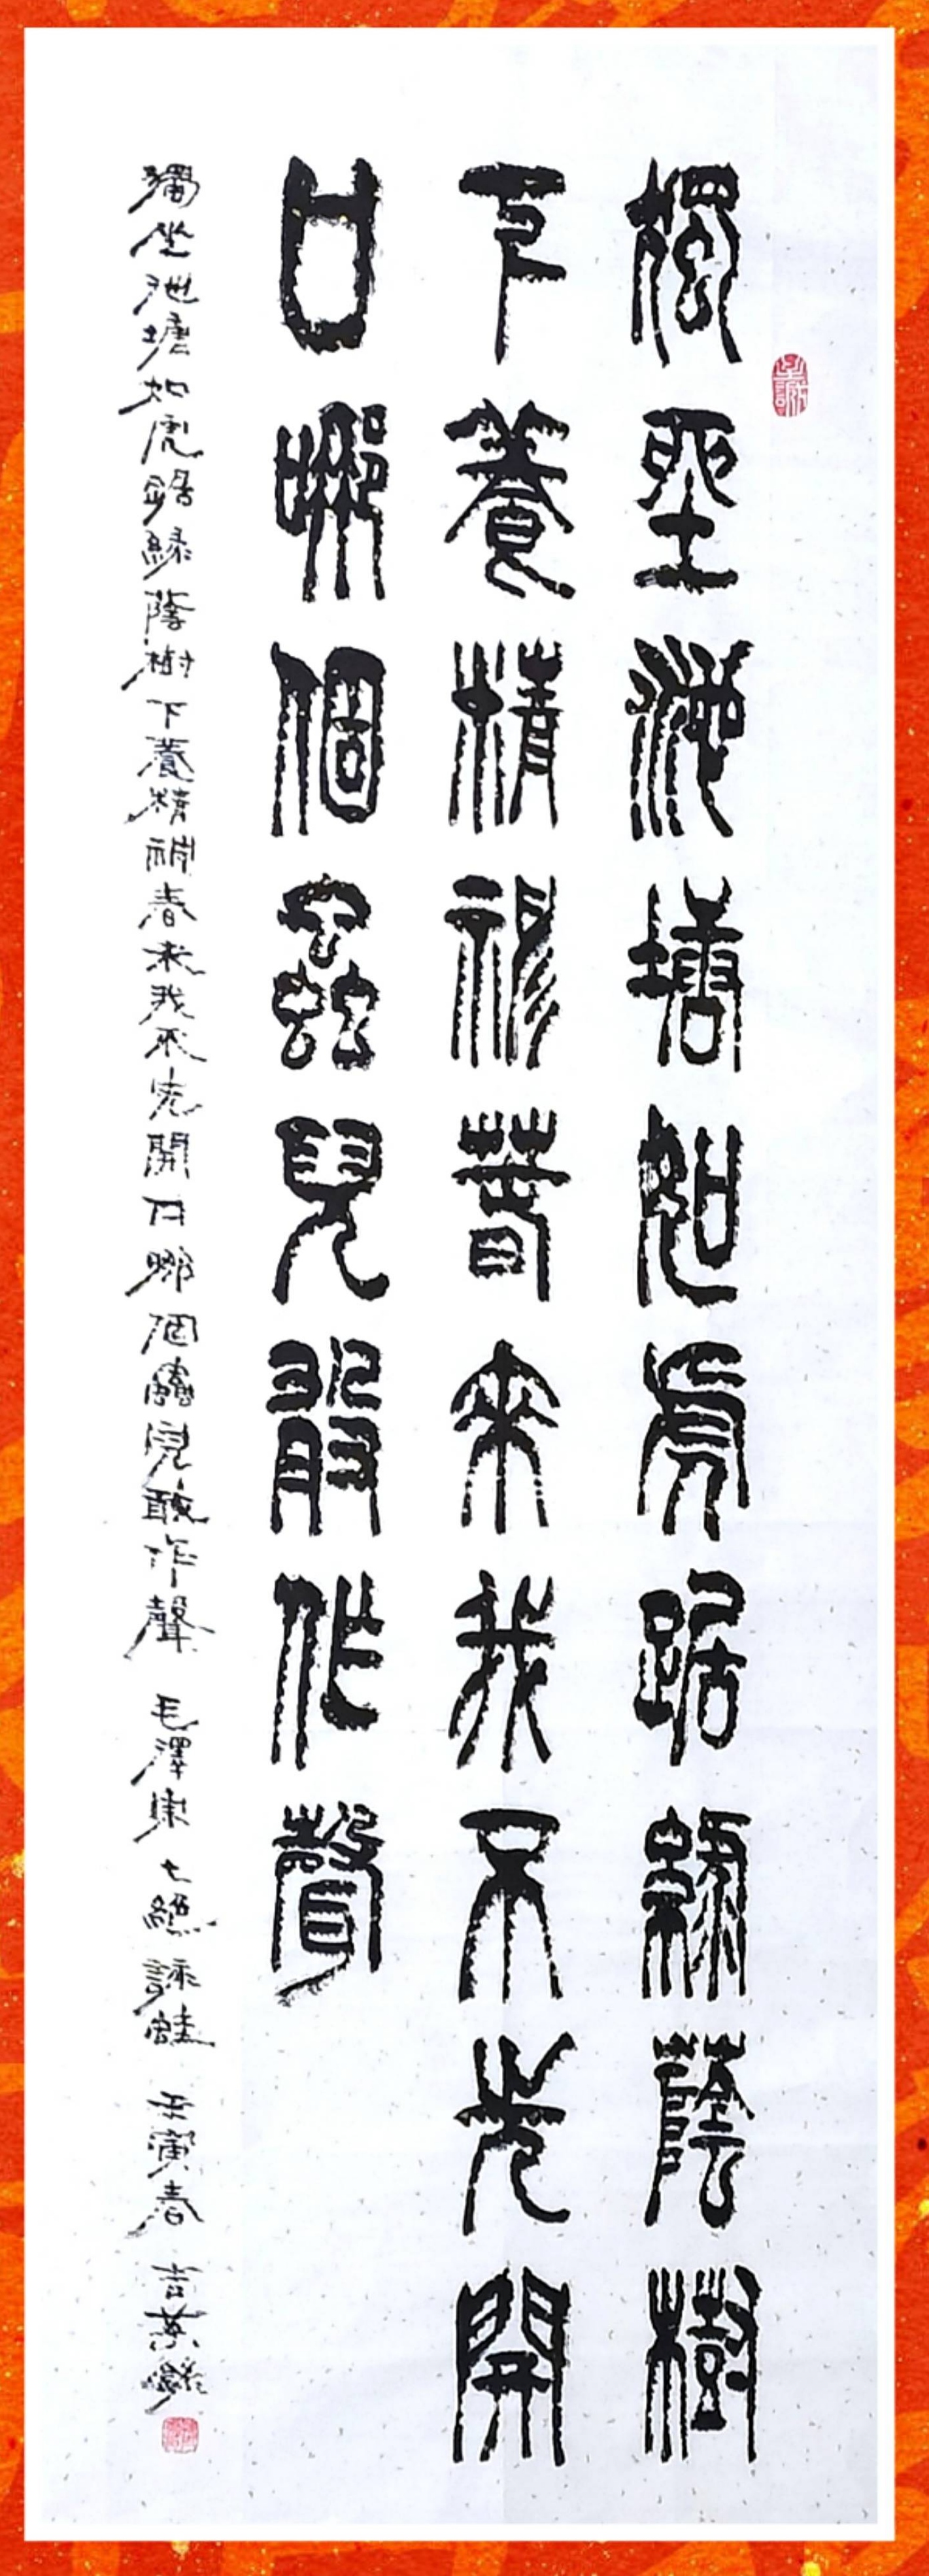 獨坐池塘如虎踞綠蔭樹
下養精神春來我不先開
口哪個蟲兒敢作聲
獨坐池塘如虎踞綠蔭樹下養精神春來我不先開口哪個蟲兒敢作聲 毛澤東七絕詠蛙 壬寅春 吉英